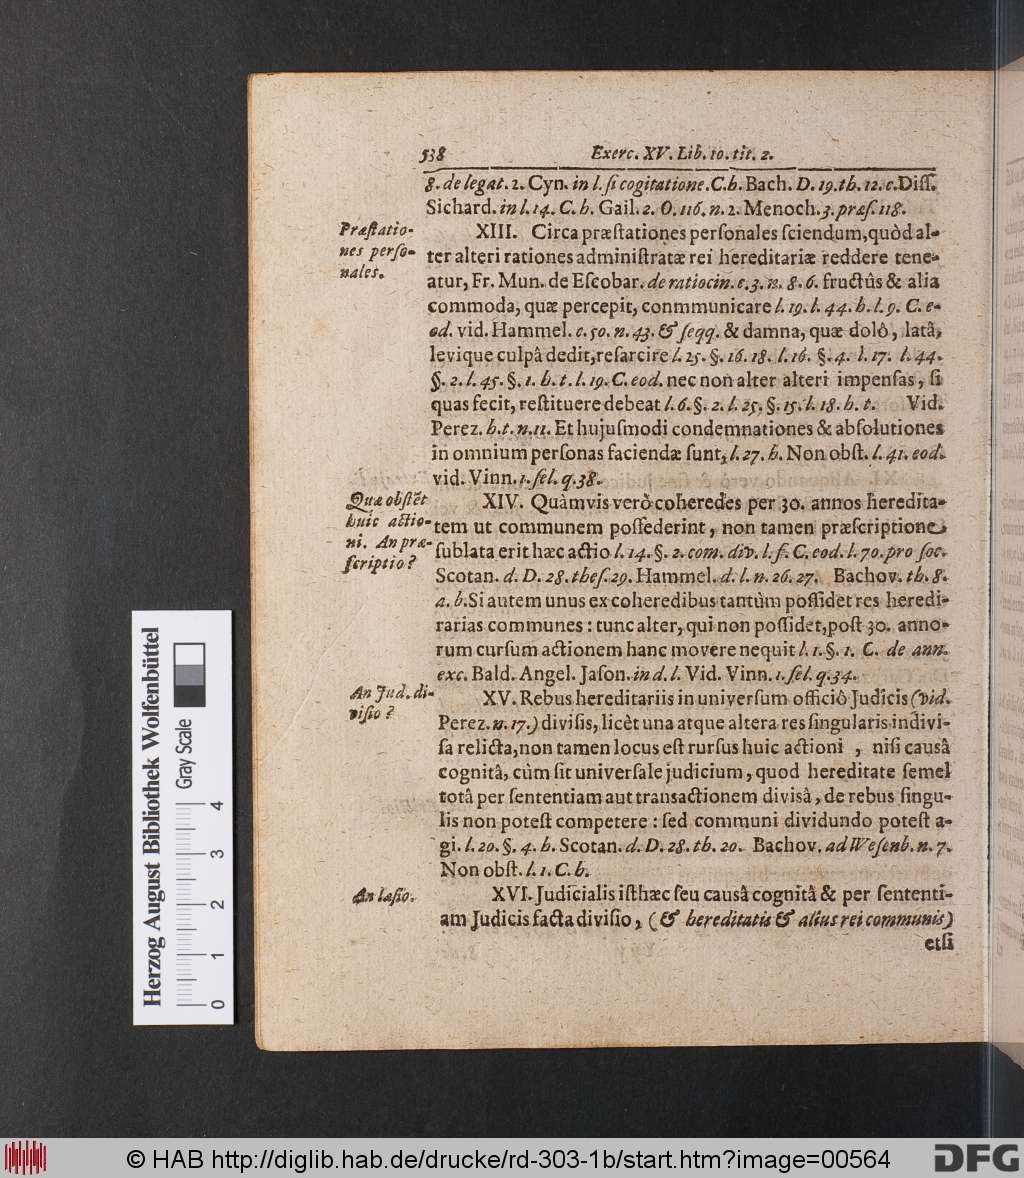 538 Exerc. XV. Lib. 10. tit. 2.
8. de legat. 2. Cyn. in l. ſi cogitatione. C. h. Bach. D. 19. th. 12. c. Diſſ.
Sichard. in l. 14. C. h. Gail. 2. O. 116. n. 2. Menoch. 3. præſ. 118.
Præſtatio-
nes perſo-
nales.
XIII. Circa præſtationes perſonales ſciendum, quòd al-
ter alteri rationes adminiſtratæ rei hereditariæ reddere tene-
atur, Fr. Mun. de Eſcobar. de ratiocin. c. 3. n. 8. 6. fructûs & alia
commoda, quæ percepit, conmmunicare l. 19. l. 44. h. l. 9. C. e-
od. vid. Hammel. c. 50. n. 43. & ſeqq. & damna, quæ dolô, latâ,
levique culpâ dedit, reſarcire l. 25. §. 16. 18. l. 16. §. 4. l. 17. l. 44.
§. 2. l. 45. §. 1. h. t. l. 19. C. eod. nec non alter alteri impenſas, ſi
quas fecit, reſtituere debeat l. 6. §. 2. l. 25. §. 15. l. 18. h. t. Vid.
Perez. h. t. n. 11. Et hujuſmodi condemnationes & abſolutiones
in omnium perſonas faciendæ ſunt, l. 27. h. Non obſt. l. 41. eod.
vid. Vinn. 1. ſel. q. 38.
Quæ obſtẽt
huic actio-
ni. An præ-
ſcriptio?
XIV. Quàmvis verò coheredes per 30. annos heredita-
tem ut communem poſſederint, non tamen præſcriptione
ſublata erit hæc actio l. 14. §. 2. com. div. l. f. C. eod. l. 70. pro ſoc.
Scotan. d. D. 28. theſ. 29. Hammel. d. l. n. 26. 27. Bachov. th. 8.
a. b. Si autem unus ex coheredibus tantùm poſſidet res heredi-
rarias communes: tunc alter, qui non poſſidet, poſt 30. anno-
rum curſum actionem hanc movere nequit l. 1. §. 1. C. de ann.
exc. Bald. Angel. Jaſon. in d. l. Vid. Vinn. 1. ſel. q. 34.
An Jud. di-
viſio?
XV. Rebus hereditariis in univerſum officiô Judicis (vid.
Perez. n. 17.) diviſis, licèt una atque altera res ſingularis indivi-
ſa relicta, non tamen locus eſt rurſus huic actioni, niſi causâ
cognitâ, cùm ſit univerſale judicium, quod hereditate ſemel
totâ per ſententiam aut transactionem divisâ, de rebus ſingu-
lis non poteſt competere: ſed communi dividundo poteſt a-
gi. l. 20. §. 4. h. Scotan. d. D. 28. th. 20. Bachov. ad Weſenb. n. 7.
Non obſt. l. 1. C. h.
An læſio.
XVI. Judicialis iſthæc ſeu causâ cognitâ & per ſententi-
am Judicis facta diviſio, (& hereditatis & alius rei communis)
etſi
Herzog August Bibliothek Wolfenbüttel
Gray Scale
0 1 2 3 4
© HAB http://diglib.hab.de/drucke/rd-303-1b/start.htm?image=00564
DFG